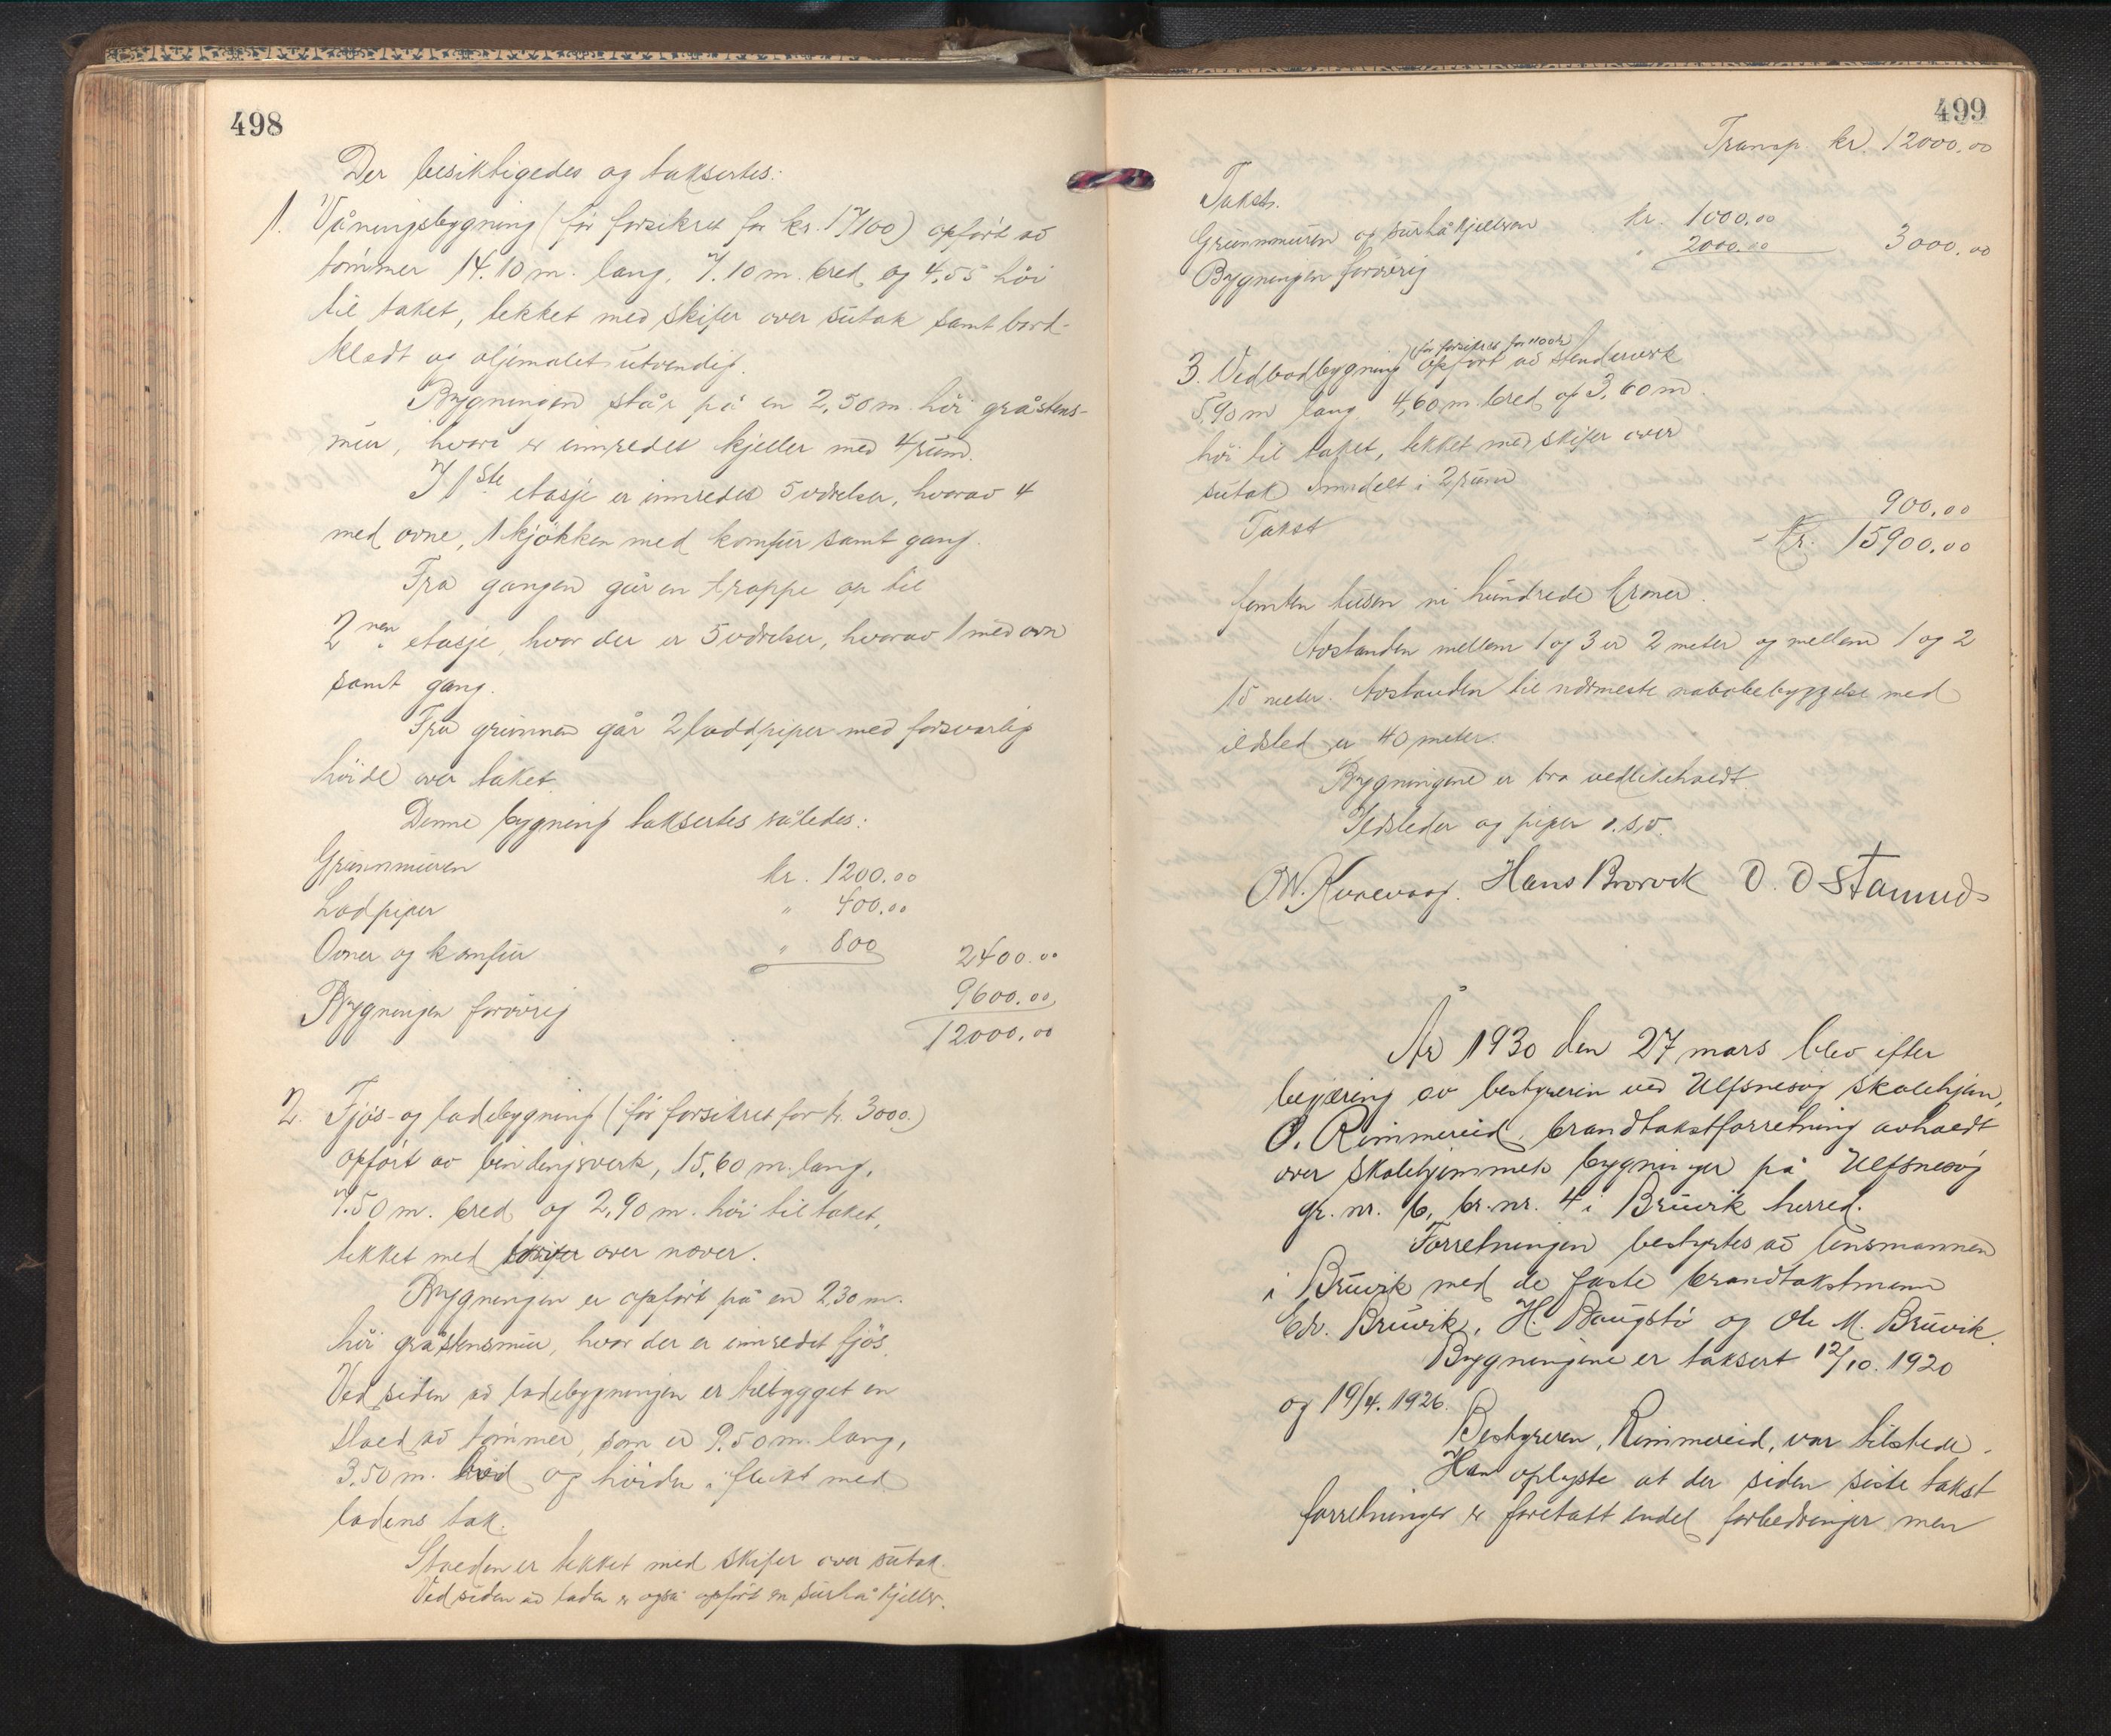 498
Der besiktigedes og taksertes:
1. Våningsbygning (før forsikret for kr. 17100) opført av
tømmer 14.10 m. lang, 7.10 m. bred og 4,55 höi
til taket, tekket med skifer over sutak samt bord-
klædt og oljemalet utvendig.
Bygningen står på en 2,50 m. höi gråstens-
mur, hvori er innredet kjeller med 4 rum.
I 1ste etasje er innredet 5 værelser, hvorav 4
med ovne, 1 kjøkken med komfur samt gang.
Fra gangen går en trappe op til
2nen etasje, hvor der er 5 værelser, hvorav 1 med ovn
samt gang.
Fra grunnen går 2 loddpiper med forsvarlig
höide over taket.
Denne bygning taksertes således:
Grunnmuren kr. 1200.00
Lodpiper " 400.00
Ovner og komfur " 800 2400.00
Bygningen forøvrig 9600.00
12000.00
2. Fjøs- og ladebygning (før forsikret for kr. 3000)
opført av bindingsverk, 15,60 m. lang,
7.50 m. bred og 2,90 m. höi til taket,
tekket med skifer over never.
Bygningen er opført på en 2,30 m.
höi gråstensmur, hvor der er innredet fjös.
Ved siden av ladebygningen er tilbygget en
stald av tömmer, som er 9.50 m. lang,
3,50 m. bred og höide i flukt med
ladens tak.
Stalden er tekket med skifer over sutak.
Ved siden av laden er også opført en surhåkjeller.
499
Transp. kr. 12000.00
Takst.
Grunnmuren og surhåkjelleren kr. 1000.00
Bygningen forøvrig " 2000.00 3000.00
(før forsikret for 1100 kr)
3. Vedbodbygning opført av stenderverk
5,90 m lang 4,60 m. bred og 3,60 m.
höi til taket, tekket med skifer over
sutak inndelt i 2 rum
Takst 900.00
Kr. 15900.00
femten tusen ni hundrede kroner.
Avstanden mellem 1 og 3 er 2 meter og mellem 1 og 2
15 meter. Avstanden til nærmeste nabobebyggelse med
ildsted er 40 meter.
Bygningene er bra vedlikeholdt.
Ildsteder og piper o.s.v.
Hans Brorvik O. O Stamnes
År 1930 den 27 mars blev efter
begjæring av bestyreren ved Ulfsnesøy skolehjem,
O. Rimmereid, brandtakstforretning avholdt
over skolehjemmets bygninger på Ulfsnesøy
gr. nr. 6, br. nr. 4 i Bruvik herred.
Forretningen bestyrtes av lensmannen
i Bruvik med de faste brandtakstmenn
Edv. Bruvik, H. Daugstö og Ole M. Bruvik.
Bygningene er taksert 12/10. 1920
og 19/4. 1926.
Bestyreren, Rimmereid, var tilstede.
Han oplyste at der siden siste takst
forretninger er foretatt endel forbedringer men